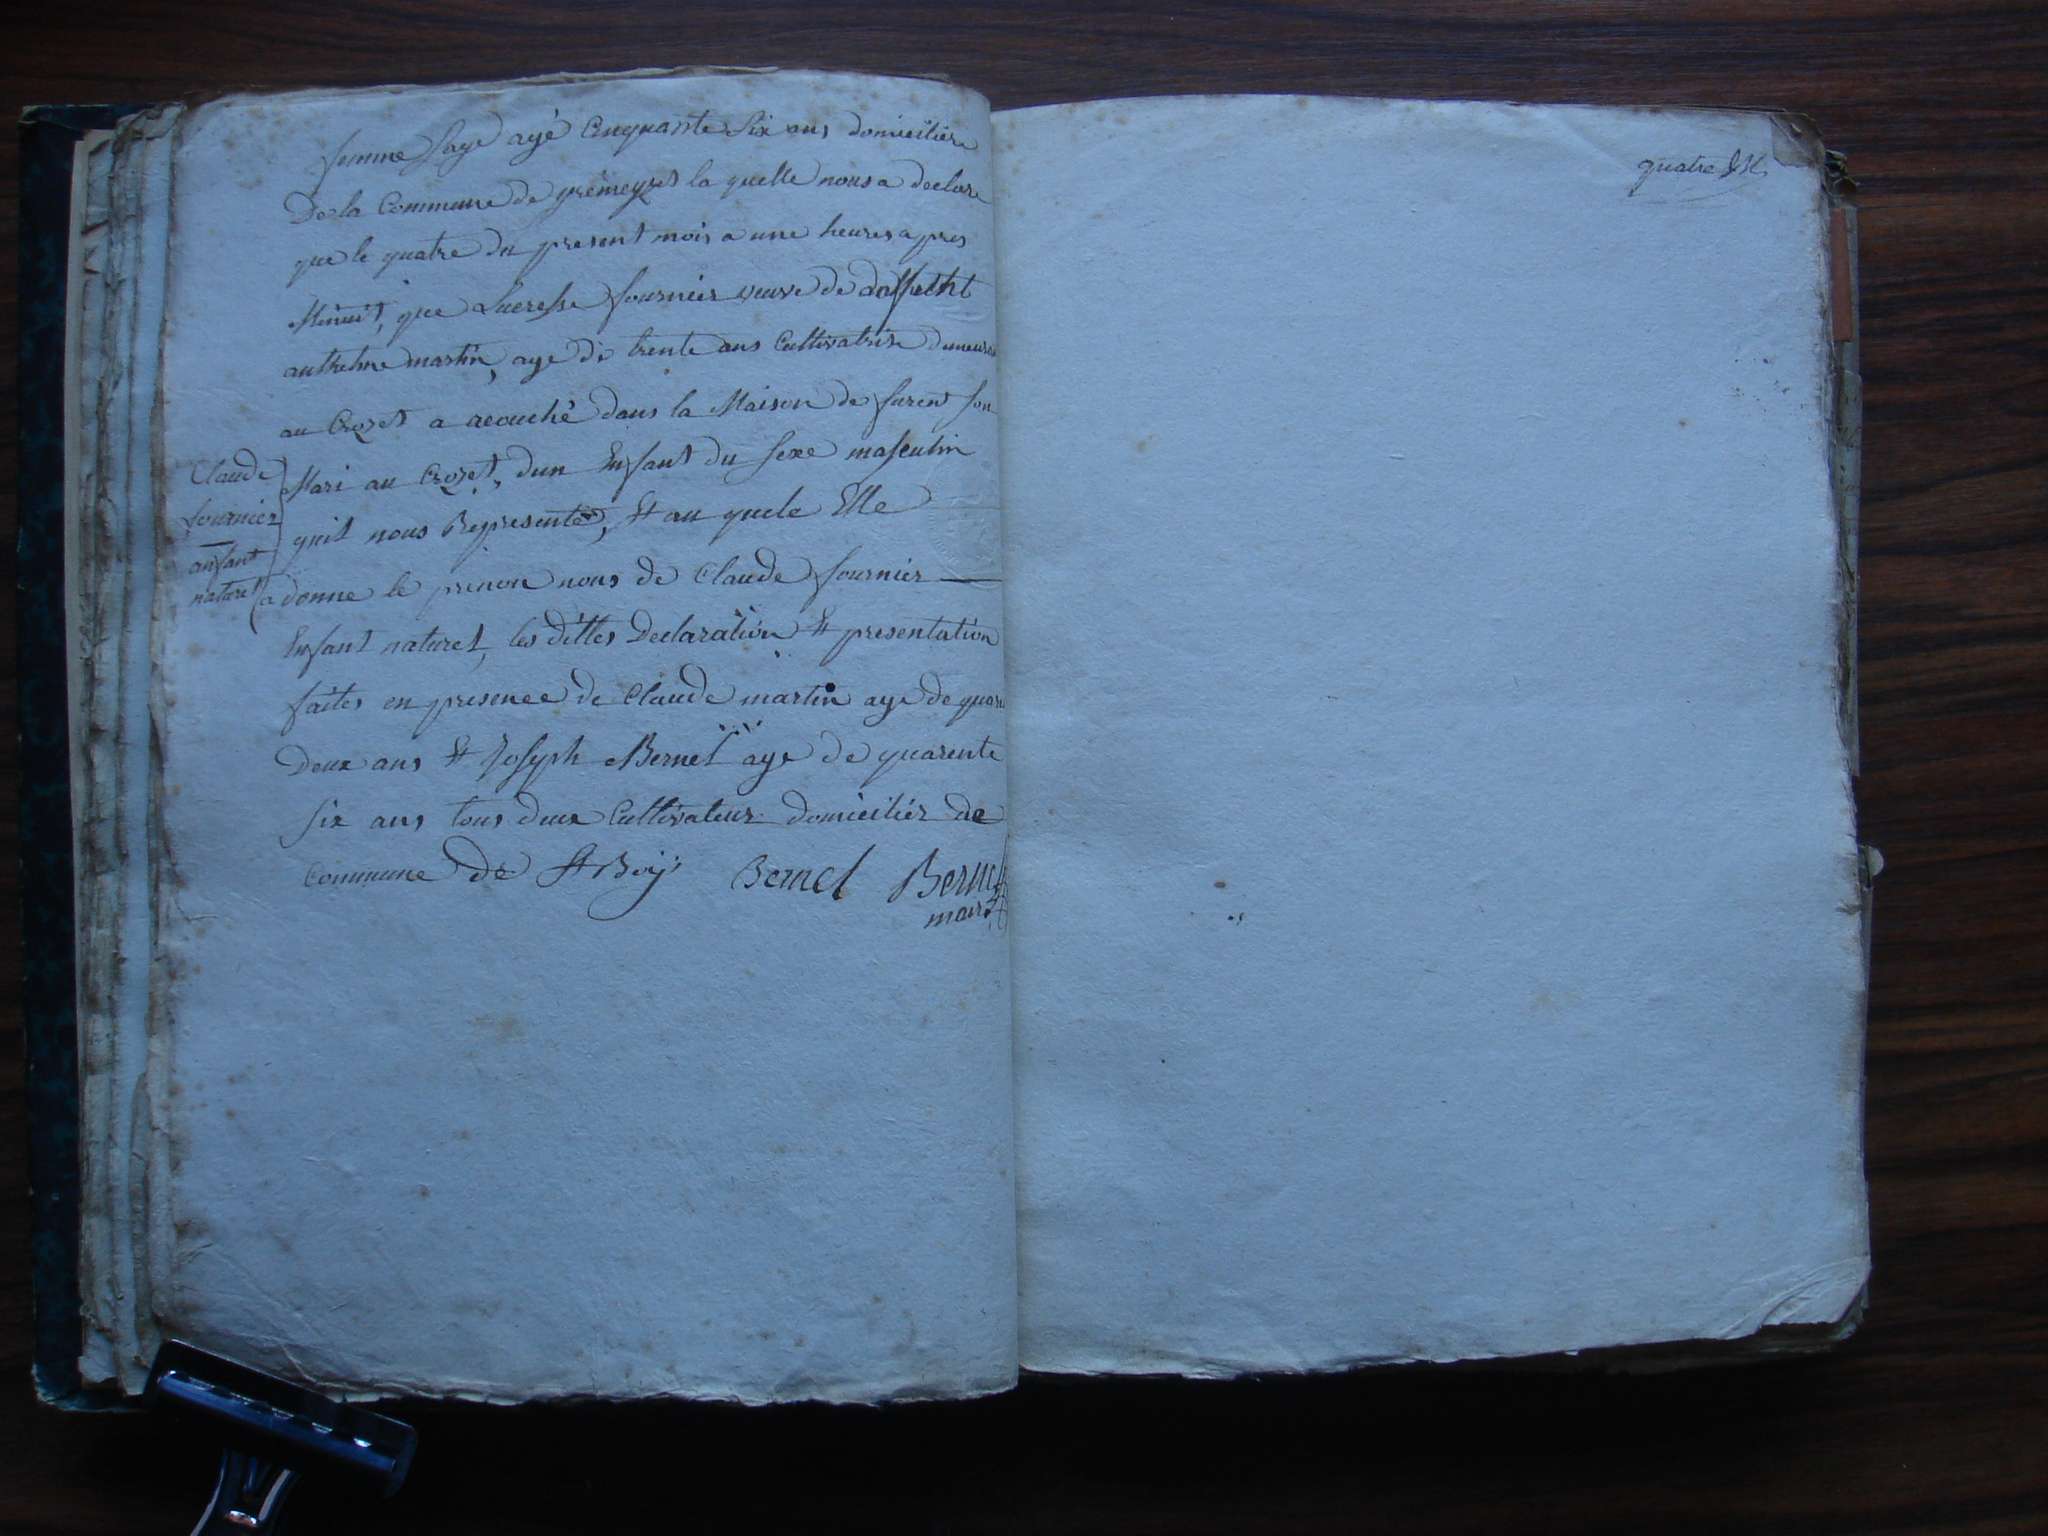 femme sage agé Cinquante Six ans domiciliére
De la Commune de premeyzel la quelle nous a declare
que le quatre du present mois a une heures apres
Minuit, que Lucresse fournier veuve de
anthelme martin, age de trente ans Cultivatrise demeurant
au Crozet a acouché dans la Maison de furent son
Mari au Crozet, dun Enfant du sexe masculin
quil nous Represente, Et au quele Elle
a donne le prenon nous de Claude fournier
Enfant naturel, les dittes Declaration Et presentation
faites en presence de Claude martin age de quare
Deux ans Et Joseph Bernet age de quarente
six ans tous deux Cultivateur domiciliér de
Commune de St Boij Bernet Bernet
maire
Claude
fournier
anfant
naturel
quatre